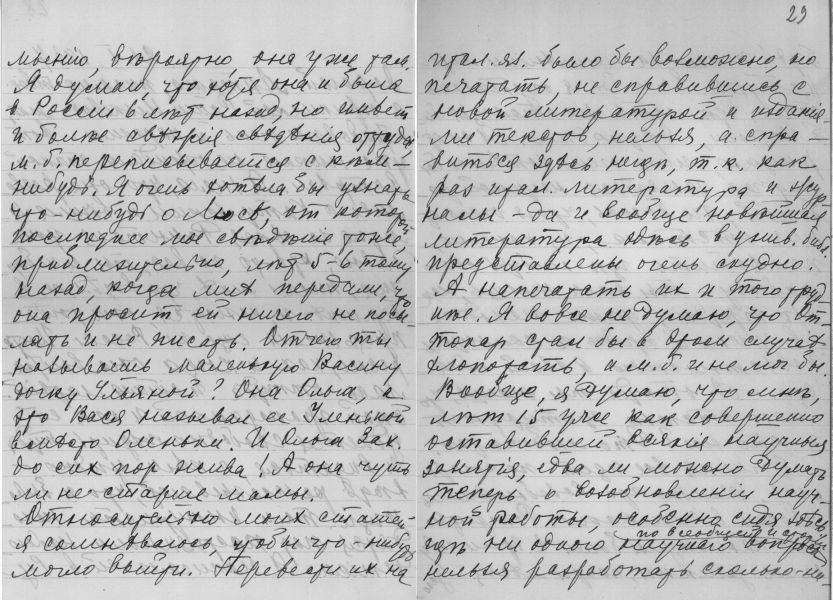 мьенію, вѣроятно, она уже там.
Я думаю, что хотя она и была
в Россіи 6 лѣт назад, но имѣет
и болѣе свѣжія свѣдѣнія оттуда,
м. б. переписывается с кѣм-
нибудь. Я очень хотѣла бы узнать
что-нибудь о Люсѣ, от которой
последнее мое свѣдѣніе тоже,
приблизительно, лѣт 5-6 тому
назад, когда мнѣ передали, что
она просит ей ничего не посы-
лать и не писать. Отчего ты
называешь маленькую Васину
дочку Ульяной? Она Ольга а
это Вася называл ее Уленькой
вмѣсто Оленьки. И Ольга Зах.
до сих пор жива! А она чуть
ли не старше мамы.
Относительно моих статей-
я сомнѣваюсь, чтобы что-нибудь
могло выйти. Перевести их на
29
итал. яз. было бы возможно, но
печатать, не справившись с
новой литературой и изданія-
ми текстов, нельзя, а спра-
виться здѣсь негдѣ, т. к. как
раз итал. литература и жур-
налы - да и вообще новѣйшая
литература здѣсь в унив. библ.
представлены очень скудно.
А напечатать их и того труд
нѣе. Я вовсе не думаю, что От-
токар стал бы в этом случаѣ
хлопотать, а м. б. и не мог бы.
Вообще, я думаю, что мнѣ,
лѣт 15 уже как совершенно
оставившей всякія научныя
занятія, едва ли можно думать
теперь о возобновленіи науч-
ной работы, особенно сидя здѣсь
гдѣ ни одного научнаго вопроса
по всеобщей исторіи
нельзя разработать сколько-ни-